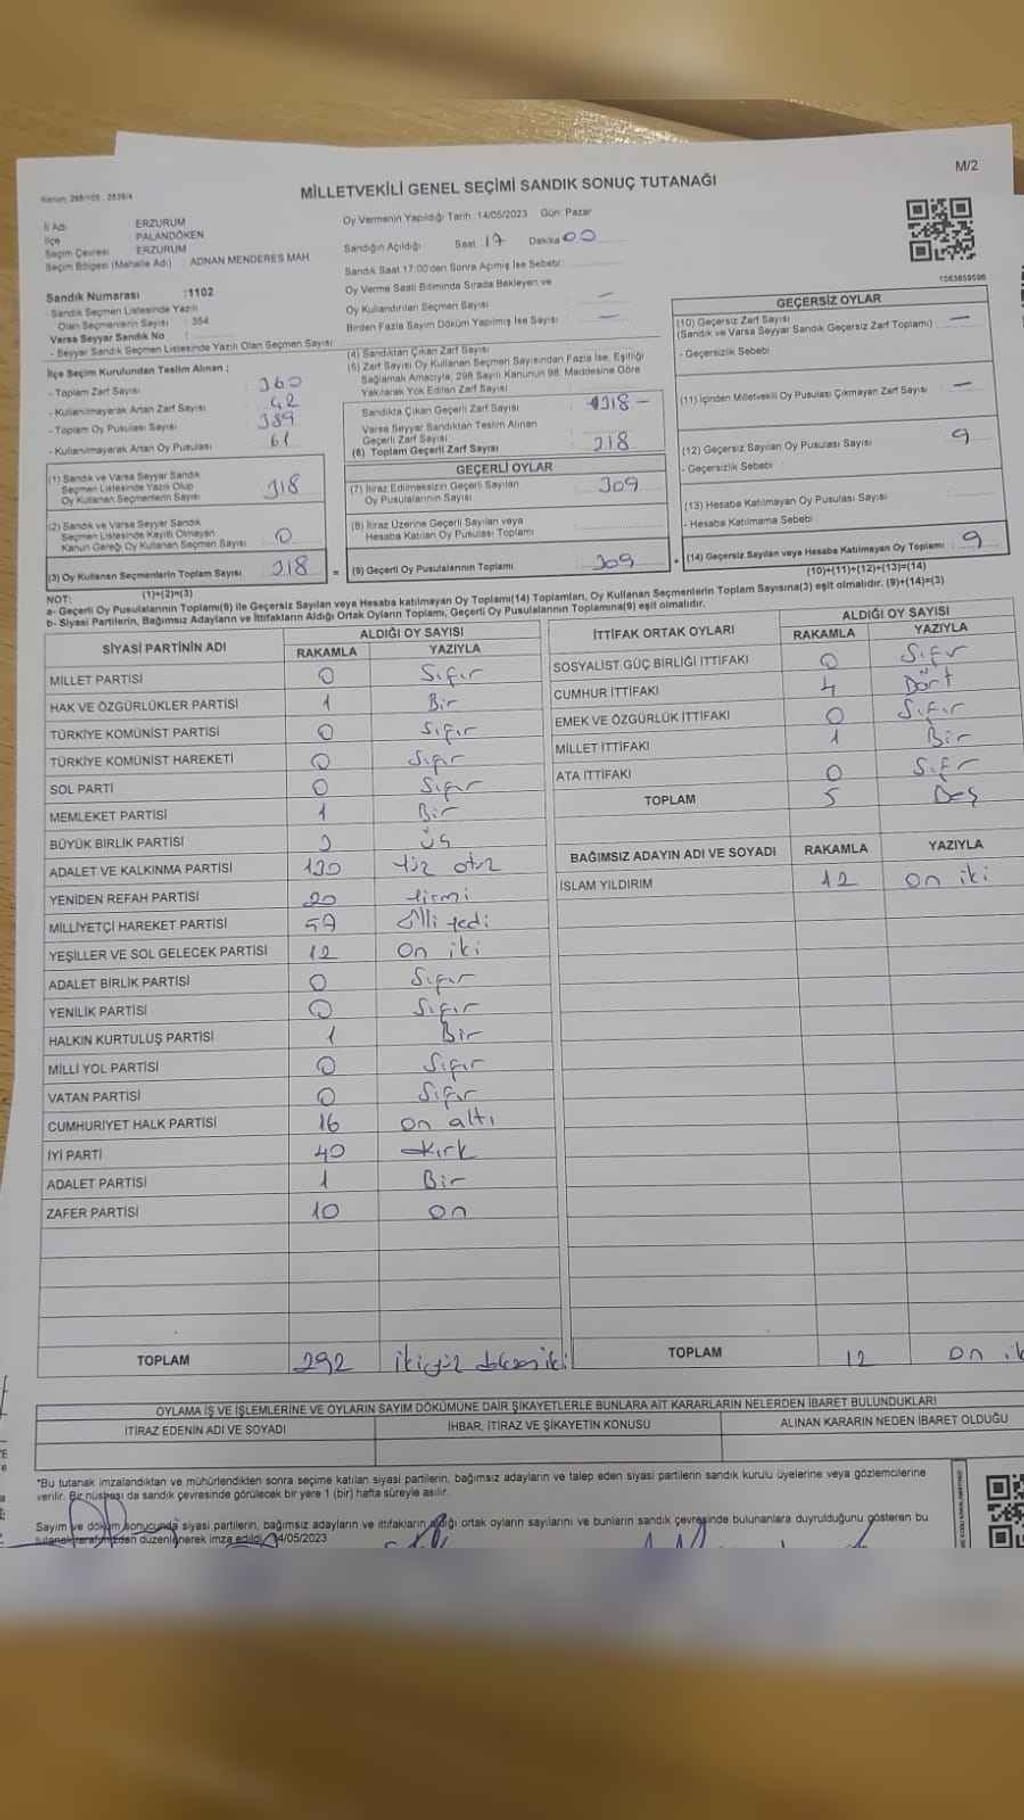 M/2
MİLLETVEKİLİ GENEL SEÇİMİ SANDIK SONUÇ TUTANAĞI
İl Adı : ERZURUM
İlçe : PALANDÖKEN
Seçim Çevresi : ERZURUM
Seçim Bölgesi (Mahalle Adı) : ADNAN MENDERES MAH
Oy Vermenin Yapıldığı Tarih : 14/05/2023 Gün: Pazar
Sandığın Açıldığı Saat 17 Dakika 00
Sandık Saat 17:00'den Sonra Açılmış İse Sebebi:
Oy Verme Saati Bitiminde Sırada Bekleyen ve
Oy Kullandırılan Seçmen Sayısı —
Birden Fazla Sayım Döküm Yapılmış İse Sayısı —
Sandık Numarası : 1102
- Sandık Seçmen Listesinde Yazılı
Olan Seçmenlerin Sayısı : 354
Varsa Seyyar Sandık No :
- Seyyar Sandık Seçmen Listesinde Yazılı Olan Seçmen Sayısı:
İlçe Seçim Kurulundan Teslim Alınan ;
- Toplam Zarf Sayısı 360
- Kullanılmayarak Artan Zarf Sayısı 42
- Toplam Oy Pusulası Sayısı
- Kullanılmayarak Artan Oy Pusulası 61
(1) Sandık ve Varsa Seyyar Sandık
Seçmen Listesinde Yazılı Olup
Oy Kullanan Seçmenlerin Sayısı 318
(2) Sandık ve Varsa Seyyar Sandık
Seçmen Listesinde Kayıtlı Olmayan
Kanun Gereği Oy Kullanan Seçmen Sayısı 0
(3) Oy Kullanan Seçmenlerin Toplam Sayısı 318
(1)+(2)=(3)
(4) Sandıktan Çıkan Zarf Sayısı
(5) Zarf Sayısı Oy Kullanan Seçmen Sayısından Fazla İse, Eşitliği
Sağlamak Amacıyla, 298 Sayılı Kanunun 98. Maddesine Göre
Yakılarak Yok Edilen Zarf Sayısı
Sandıkta Çıkan Geçerli Zarf Sayısı 318 -
Varsa Seyyar Sandıktan Teslim Alınan
Geçerli Zarf Sayısı
(6) Toplam Geçerli Zarf Sayısı 318
GEÇERLİ OYLAR
(7) İtiraz Edilmeksizin Geçerli Sayılan
Oy Pusulalarının Sayısı 309
(8) İtiraz Üzerine Geçerli Sayılan veya
Hesaba Katılan Oy Pusulası Toplamı
= (9) Geçerli Oy Pusulalarının Toplamı 309
GEÇERSİZ OYLAR
(10) Geçersiz Zarf Sayısı —
(Sandık ve Varsa Seyyar Sandık Geçersiz Zarf Toplamı)
- Geçersizlik Sebebi
(11) İçinden Milletvekili Oy Pusulası Çıkmayan Zarf Sayısı —
(12) Geçersiz Sayılan Oy Pusulası Sayısı 9
- Geçersizlik Sebebi
(13) Hesaba Katılmayan Oy Pusulası Sayısı
- Hesaba Katılmama Sebebi
+ (14) Geçersiz Sayılan veya Hesaba Katılmayan Oy Toplamı 9
(10)+(11)+(12)+(13)=(14)
NOT:
a- Geçerli Oy Pusulalarının Toplamı(9) ile Geçersiz Sayılan veya Hesaba katılmayan Oy Toplamı(14) Toplamları, Oy Kullanan Seçmenlerin Toplam Sayısına(3) eşit olmalıdır. (9)+(14)=(3)
b- Siyasi Partilerin, Bağımsız Adayların ve İttifakların Aldığı Ortak Oyların Toplamı, Geçerli Oy Pusulalarının Toplamına(9) eşit olmalıdır.
SİYASİ PARTİNİN ADI ALDIĞI OY SAYISI
RAKAMLA YAZIYLA
MİLLET PARTİSİ 0 Sıfır
HAK VE ÖZGÜRLÜKLER PARTİSİ 1 Bir
TÜRKİYE KOMÜNİST PARTİSİ 0 Sıfır
TÜRKİYE KOMÜNİST HAREKETİ 0 Sıfır
SOL PARTİ 0 Sıfır
MEMLEKET PARTİSİ 1 Bir
BÜYÜK BİRLİK PARTİSİ 3 Üç
ADALET VE KALKINMA PARTİSİ 130 Yüz otuz
YENİDEN REFAH PARTİSİ 20 Yirmi
MİLLİYETÇİ HAREKET PARTİSİ 57 Elli yedi
YEŞİLLER VE SOL GELECEK PARTİSİ 12 On iki
ADALET BİRLİK PARTİSİ 0 Sıfır
YENİLİK PARTİSİ 0 Sıfır
HALKIN KURTULUŞ PARTİSİ 1 Bir
MİLLİ YOL PARTİSİ 0 Sıfır
VATAN PARTİSİ 0 Sıfır
CUMHURİYET HALK PARTİSİ 16 On altı
İYİ PARTİ 40 Kırk
ADALET PARTİSİ 1 Bir
ZAFER PARTİSİ 10 On
TOPLAM 292 ikiyüz doksan iki
İTTİFAK ORTAK OYLARI ALDIĞI OY SAYISI
RAKAMLA YAZIYLA
SOSYALİST GÜÇ BİRLİĞİ İTTİFAKI 0 Sıfır
CUMHUR İTTİFAKI 4 Dört
EMEK VE ÖZGÜRLÜK İTTİFAKI 0 Sıfır
MİLLET İTTİFAKI 1 Bir
ATA İTTİFAKI 0 Sıfır
TOPLAM 5 Beş
BAĞIMSIZ ADAYIN ADI VE SOYADI RAKAMLA YAZIYLA
İSLAM YILDIRIM 12 On iki
TOPLAM 12 On ik
OYLAMA İŞ VE İŞLEMLERİNE VE OYLARIN SAYIM DÖKÜMÜNE DAİR ŞİKAYETLERLE BUNLARA AİT KARARLARIN NELERDEN İBARET BULUNDUKLARI
İTİRAZ EDENİN ADI VE SOYADI İHBAR, İTİRAZ VE ŞİKAYETİN KONUSU ALINAN KARARIN NEDEN İBARET OLDUĞU
*Bu tutanak imzalandıktan ve mühürlendikten sonra seçime katılan siyasi partilerin, bağımsız adayların ve talep eden siyasi partilerin sandık kurulu üyelerine veya gözlemcilerine
verilir. Bir nüshası da sandık çevresinde görülecek bir yere 1 (bir) hafta süreyle asılır.
Sayım ve döküm sonucunda siyasi partilerin, bağımsız adayların ve ittifakların aldığı ortak oyların sayılarını ve bunların sandık çevresinde bulunanlara duyurulduğunu gösteren bu
tutanak tarafımızdan düzenlenerek imza edildi. 14/05/2023